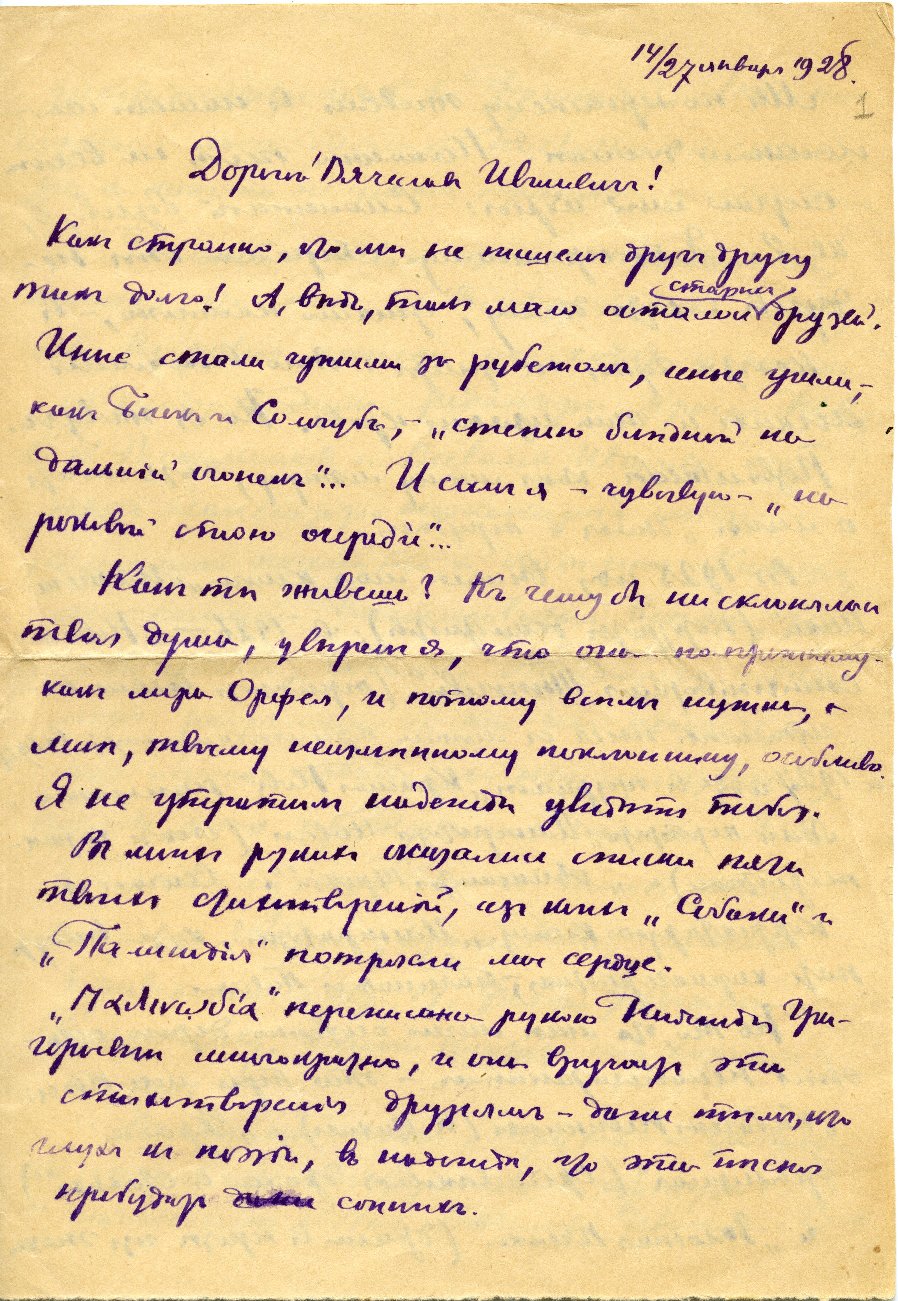 14/27 января 1928.
1
Дорогой Вячеслав Иванович!
Какъ странно, что мы не пишемъ другъ другу
такъ долго! А, вѣдь, такъ мало осталось старыхъ друзей.
Иные стали чужими за рубежомъ, иные ушли,–
какъ и Сологубъ,– „стезею блѣдной на
дальній огонекъ"... И самъ я – чувствую – „на
роковой стою очереди"...
Какъ ты живешь? Къ чему бы ни склонялась
твоя душа, увѣренъ я, что она по-прежнему –
какъ лира Орфея, и потому всѣмъ нужна, а
мнѣ, твоему неизмѣнному поклоннику, особливо.
Я не утратилъ надежды увидѣть тебя.
Въ моихъ рукахъ оказались списки пяти
твоихъ стихотвореній, изъ коихъ „Собаки" и
„Палинодія" потрясли мое сердце.
„Палинодія" переписана рукою Григорьевны
многократно, и она вручаетъ эти
стихотворенія друзьямъ – даже тѣмъ, кто
глухъ къ поэзіи, въ надеждѣ, что эти пѣсни
пробудятъ сонныхъ.